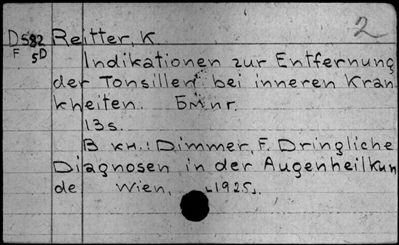 2
D582 Reitter, K.
F 5D Indikationen zur Entfernung
der Tonsillen bei inneren Kran
kheiten. Бм nr.
13s.
В кн.: Dimmer, F. Dringliche
Diagnosen in der Augenheilkun
de Wien, 1925.